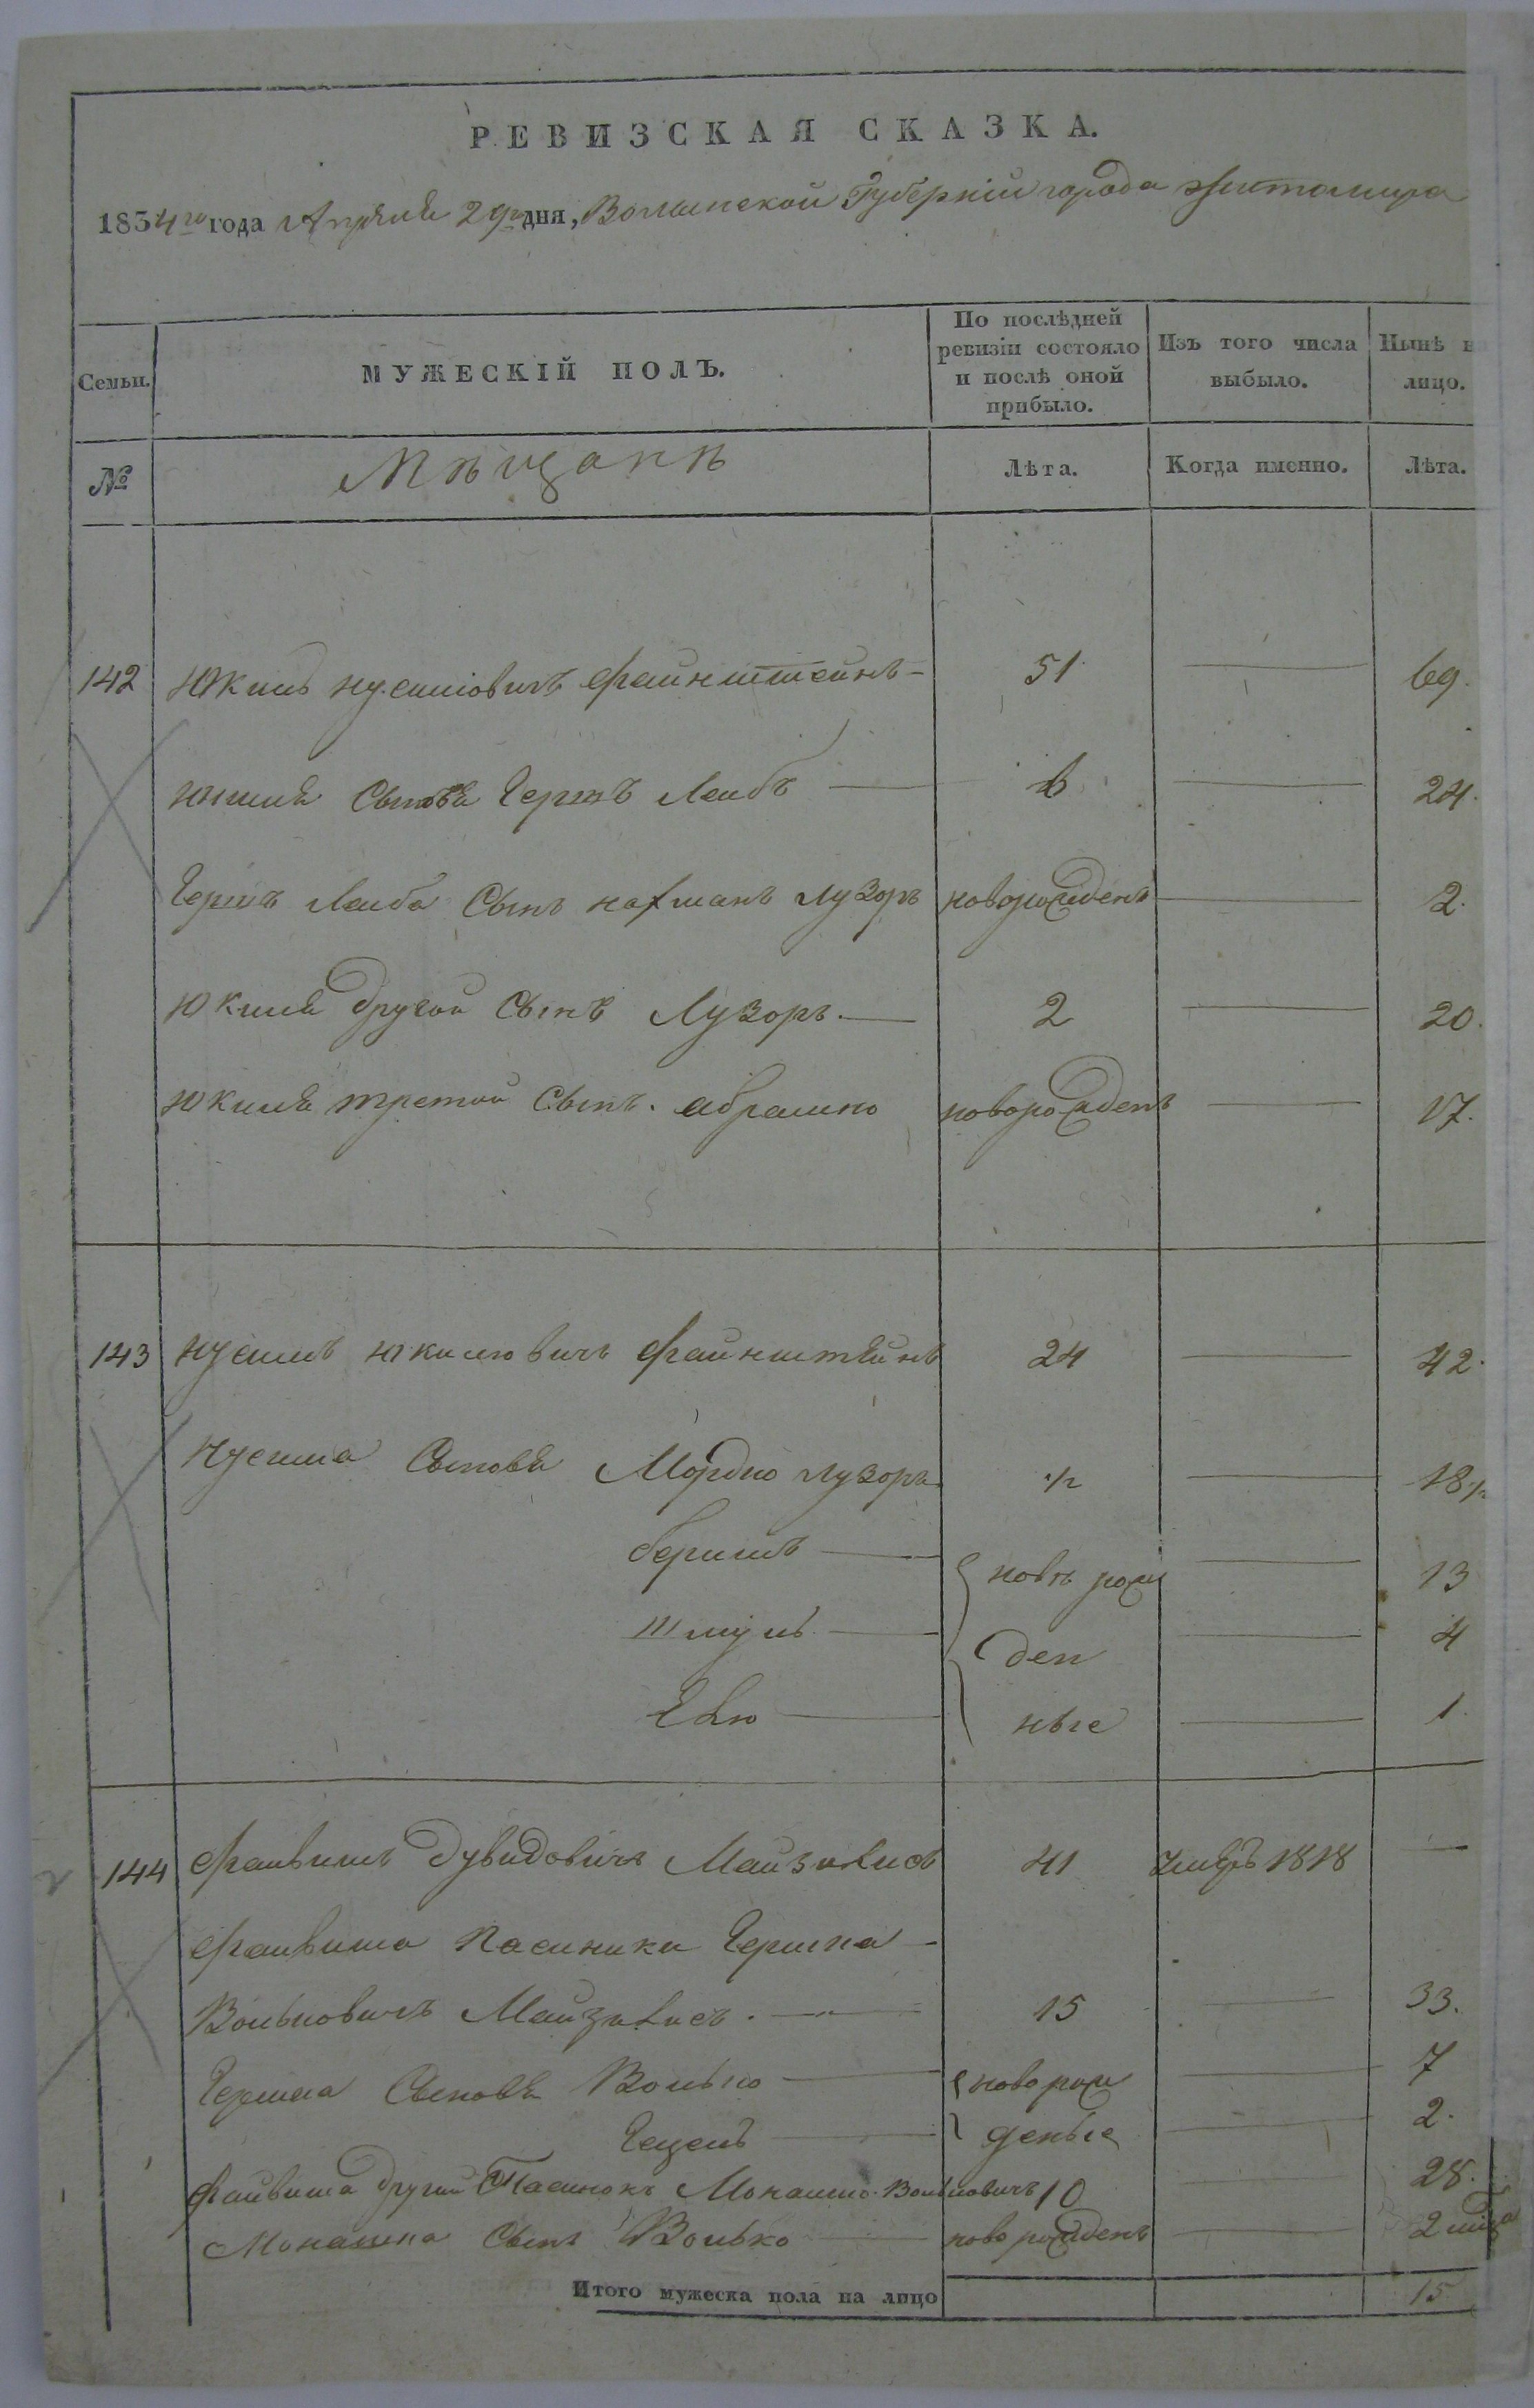 РЕВИЗСКАЯ СКАЗКА.
1834го года Апреля 29го дня, Волынской Губерніи города Житомира
Семьи. МУЖЕСКІЙ ПОЛЪ. По послѣдней ревизіи состояло и послѣ оной прибыло. Изъ того числа выбыло. Нынѣ на лицо.
№ Мѣщанѣ Лѣта. Когда именно. Лѣта.
142 Юкиль Нусимовичъ Файнштейнъ 51 — 69.
Юкиля Сыновя Гершъ Лейбъ — 6 — 24.
Гершъ Лейба Сынъ Нахманъ Лузоръ новорожденъ — 2.
Юкиля другой Сынъ Лузоръ — 2 — 20.
Юкиля третой Сынъ Абрамко новорожденъ — 17.
143 Нусимъ Юкилювичъ Файнштейнъ 24 — 42.
Нусима Сыновя Мордко Лузоръ 1/2 — 18 1/2
Беришъ — новъ рож — 13
Шмуль — ден — 4
— ные — 1
144 Файвишъ Дувидовичъ Майзлисъ 41 умеръ 1818 —
Файвиша Пасинки Гершка
Вольковичъ Майзлисъ — 15 — 33.
Гершка Сыновя Волько — новорож — 7
— деные — 2.
Файвиша другий Пасинокъ Монашко Вольковичъ 10 — 28.
Монашка Сынъ Волько — новорожденъ — 2 мѣца
Итого мужеска пола на лицо 15